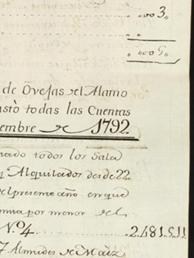 ..003„
..005„
de Ovejas el Alamo
todas las Cuentas
embre de 1792.
todos los Sala
y Alquilados desde 22
el presente año en que
por menor del
Nº 4.
7 Almudes de Maiz